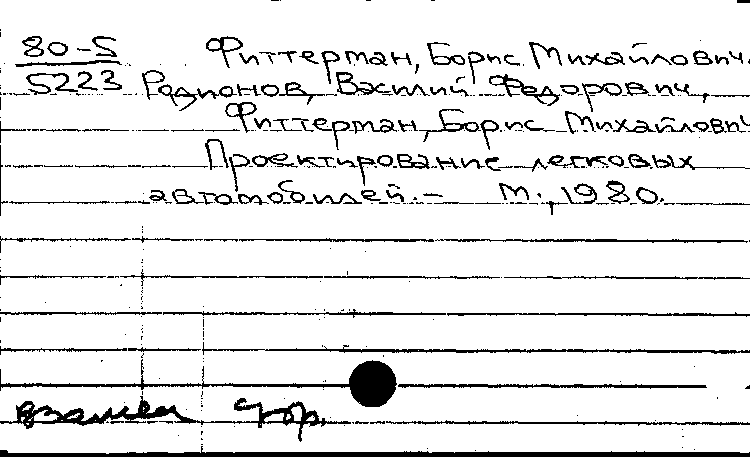 80-5 Фиттерман, Борис Михайлович.
5223 Родионов, Василий Федорович,
Фиттерман, Борис Михайлович
Проектирование легковых
автомобилей. – М., 1980.
взамен